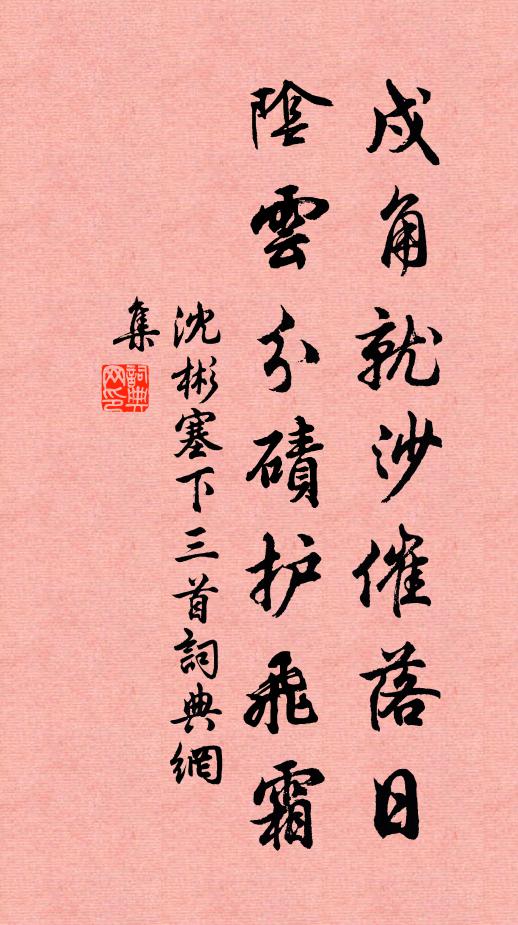 戍角就沙催落日
陰雲分磧护飛霜
沈彬塞下三首詞典網
集
詞典
网印